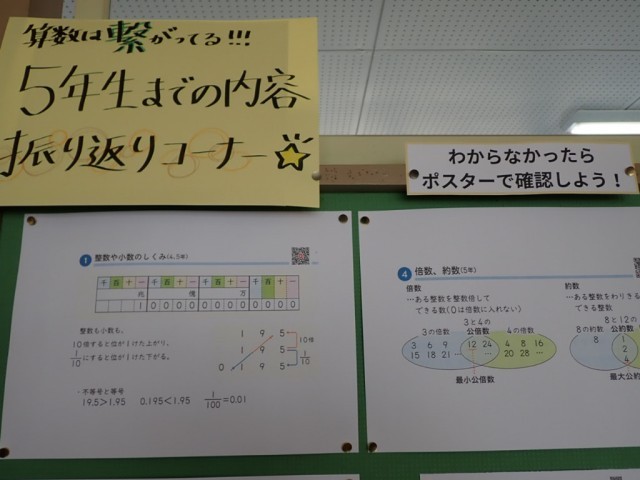 算数は繋がってる!!!
5年生までの内容
振り返りコーナー☆
わからなかったら
ポスターで確認しよう！
1 整数や小数のしくみ(4,5年)
千 百 十 一 千 百 十 一 千 百 十 一 千 百 十 一
兆 億 万
1 0 0 0 0 0 0 0 0 0 0 0 0
整数も小数も、
10倍すると位が1けた上がり、
1/10にすると位が1けた下がる。
1 9 5
1 9 5
0 1 9 5
10倍
1/10
・不等号と等号
19.5>1.95 0.195<1.95 1/100=0.01
4 倍数、約数(5年)
倍数
…ある整数を整数倍して
できる数(0は倍数に入れない)
3と4の
3の倍数 公倍数 4の倍数
3 6 9 12 24 4 8 16
15 18 21 … … 20 28 …
最小公倍数
約数
…ある整数をわりきる
できる整数
8と12の
8の約数 公約数
8 1
2
4
最大公約